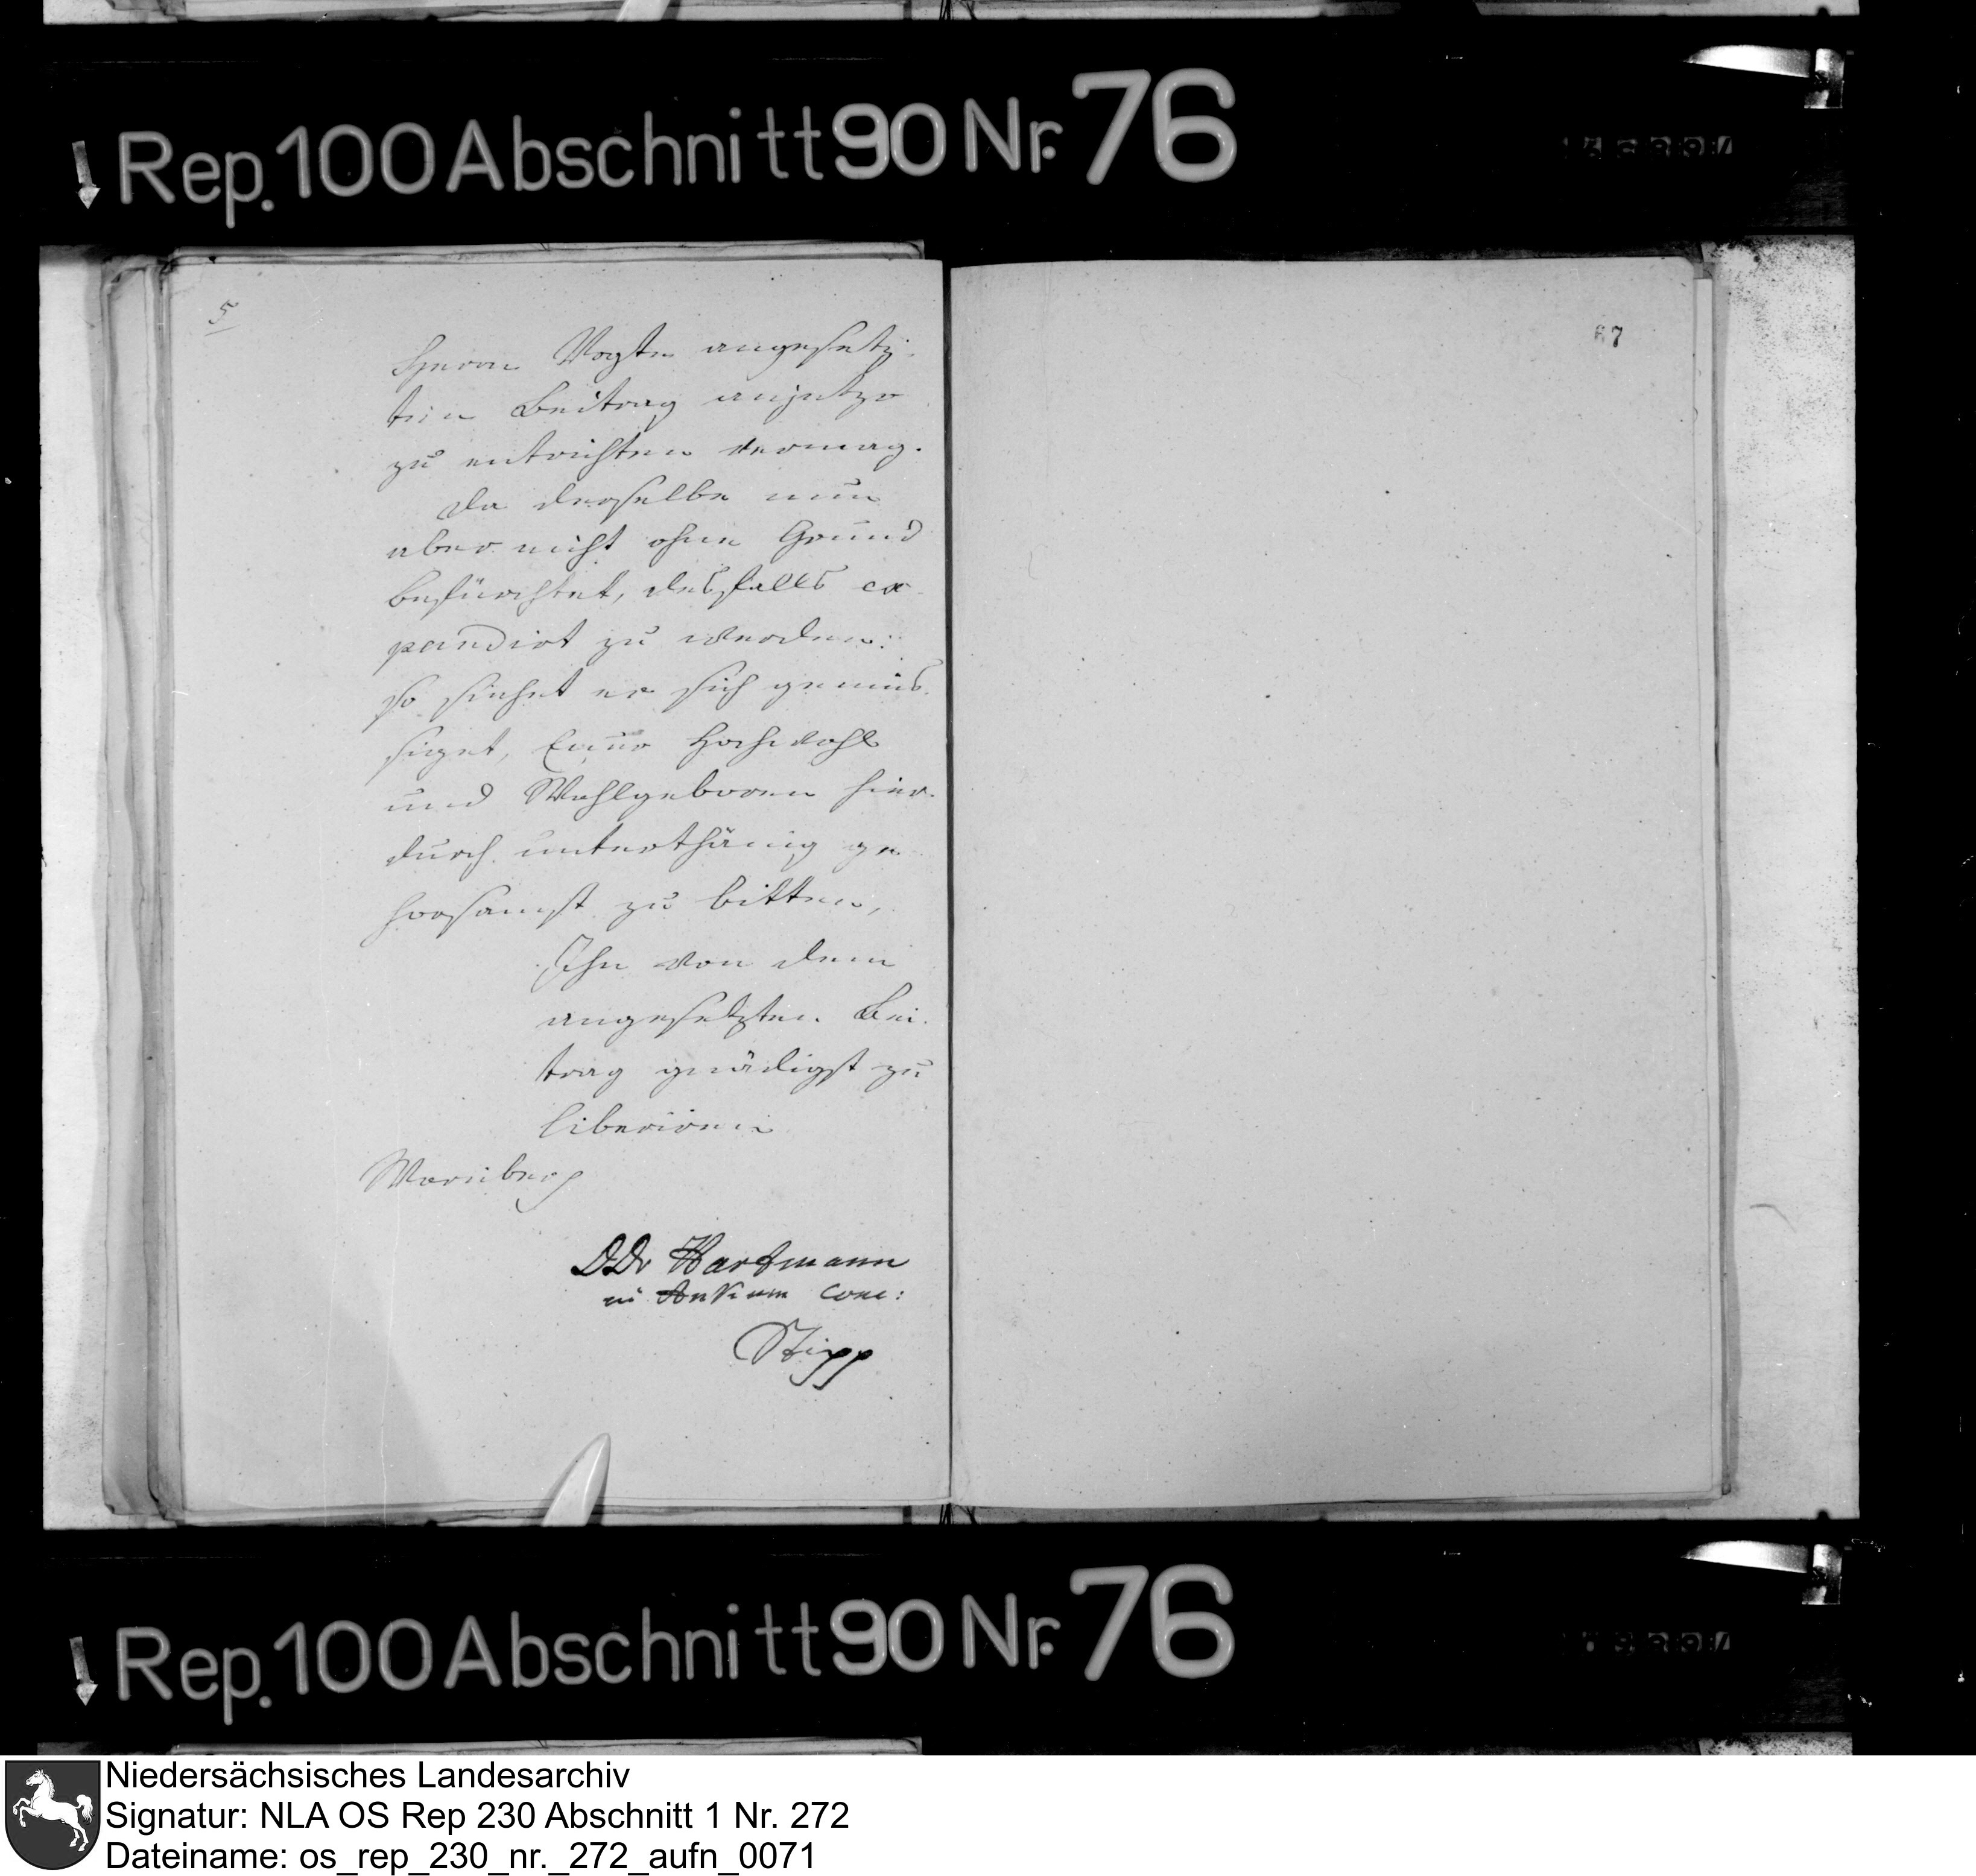 Rep. 100 Abschnitt 90 Nr. 76
5
Herrn Vogte angesetz-
ten Beitrag anjetzo
zu entrichten vermag.
Da derselbe nun
aber nicht ohne Grund
befürchtet, desfalls ex-
pendirt zu werden:
so siehet er sich gemüs-
siget, Euer Hochwohl
und Wohlgeboren hier-
durch unterthänig ge
horsamst zu bitten,
Ihn von dem
angesetzten Bei-
trag gnädigst zu
liberiren
Hartmann
in Ankum conc:
Stipp
67
Rep. 100 Abschnitt 90 Nr. 76
Niedersächsisches Landesarchiv
Signatur: NLA OS Rep 230 Abschnitt 1 Nr. 272
Dateiname: os_rep_230_nr._272_aufn_0071